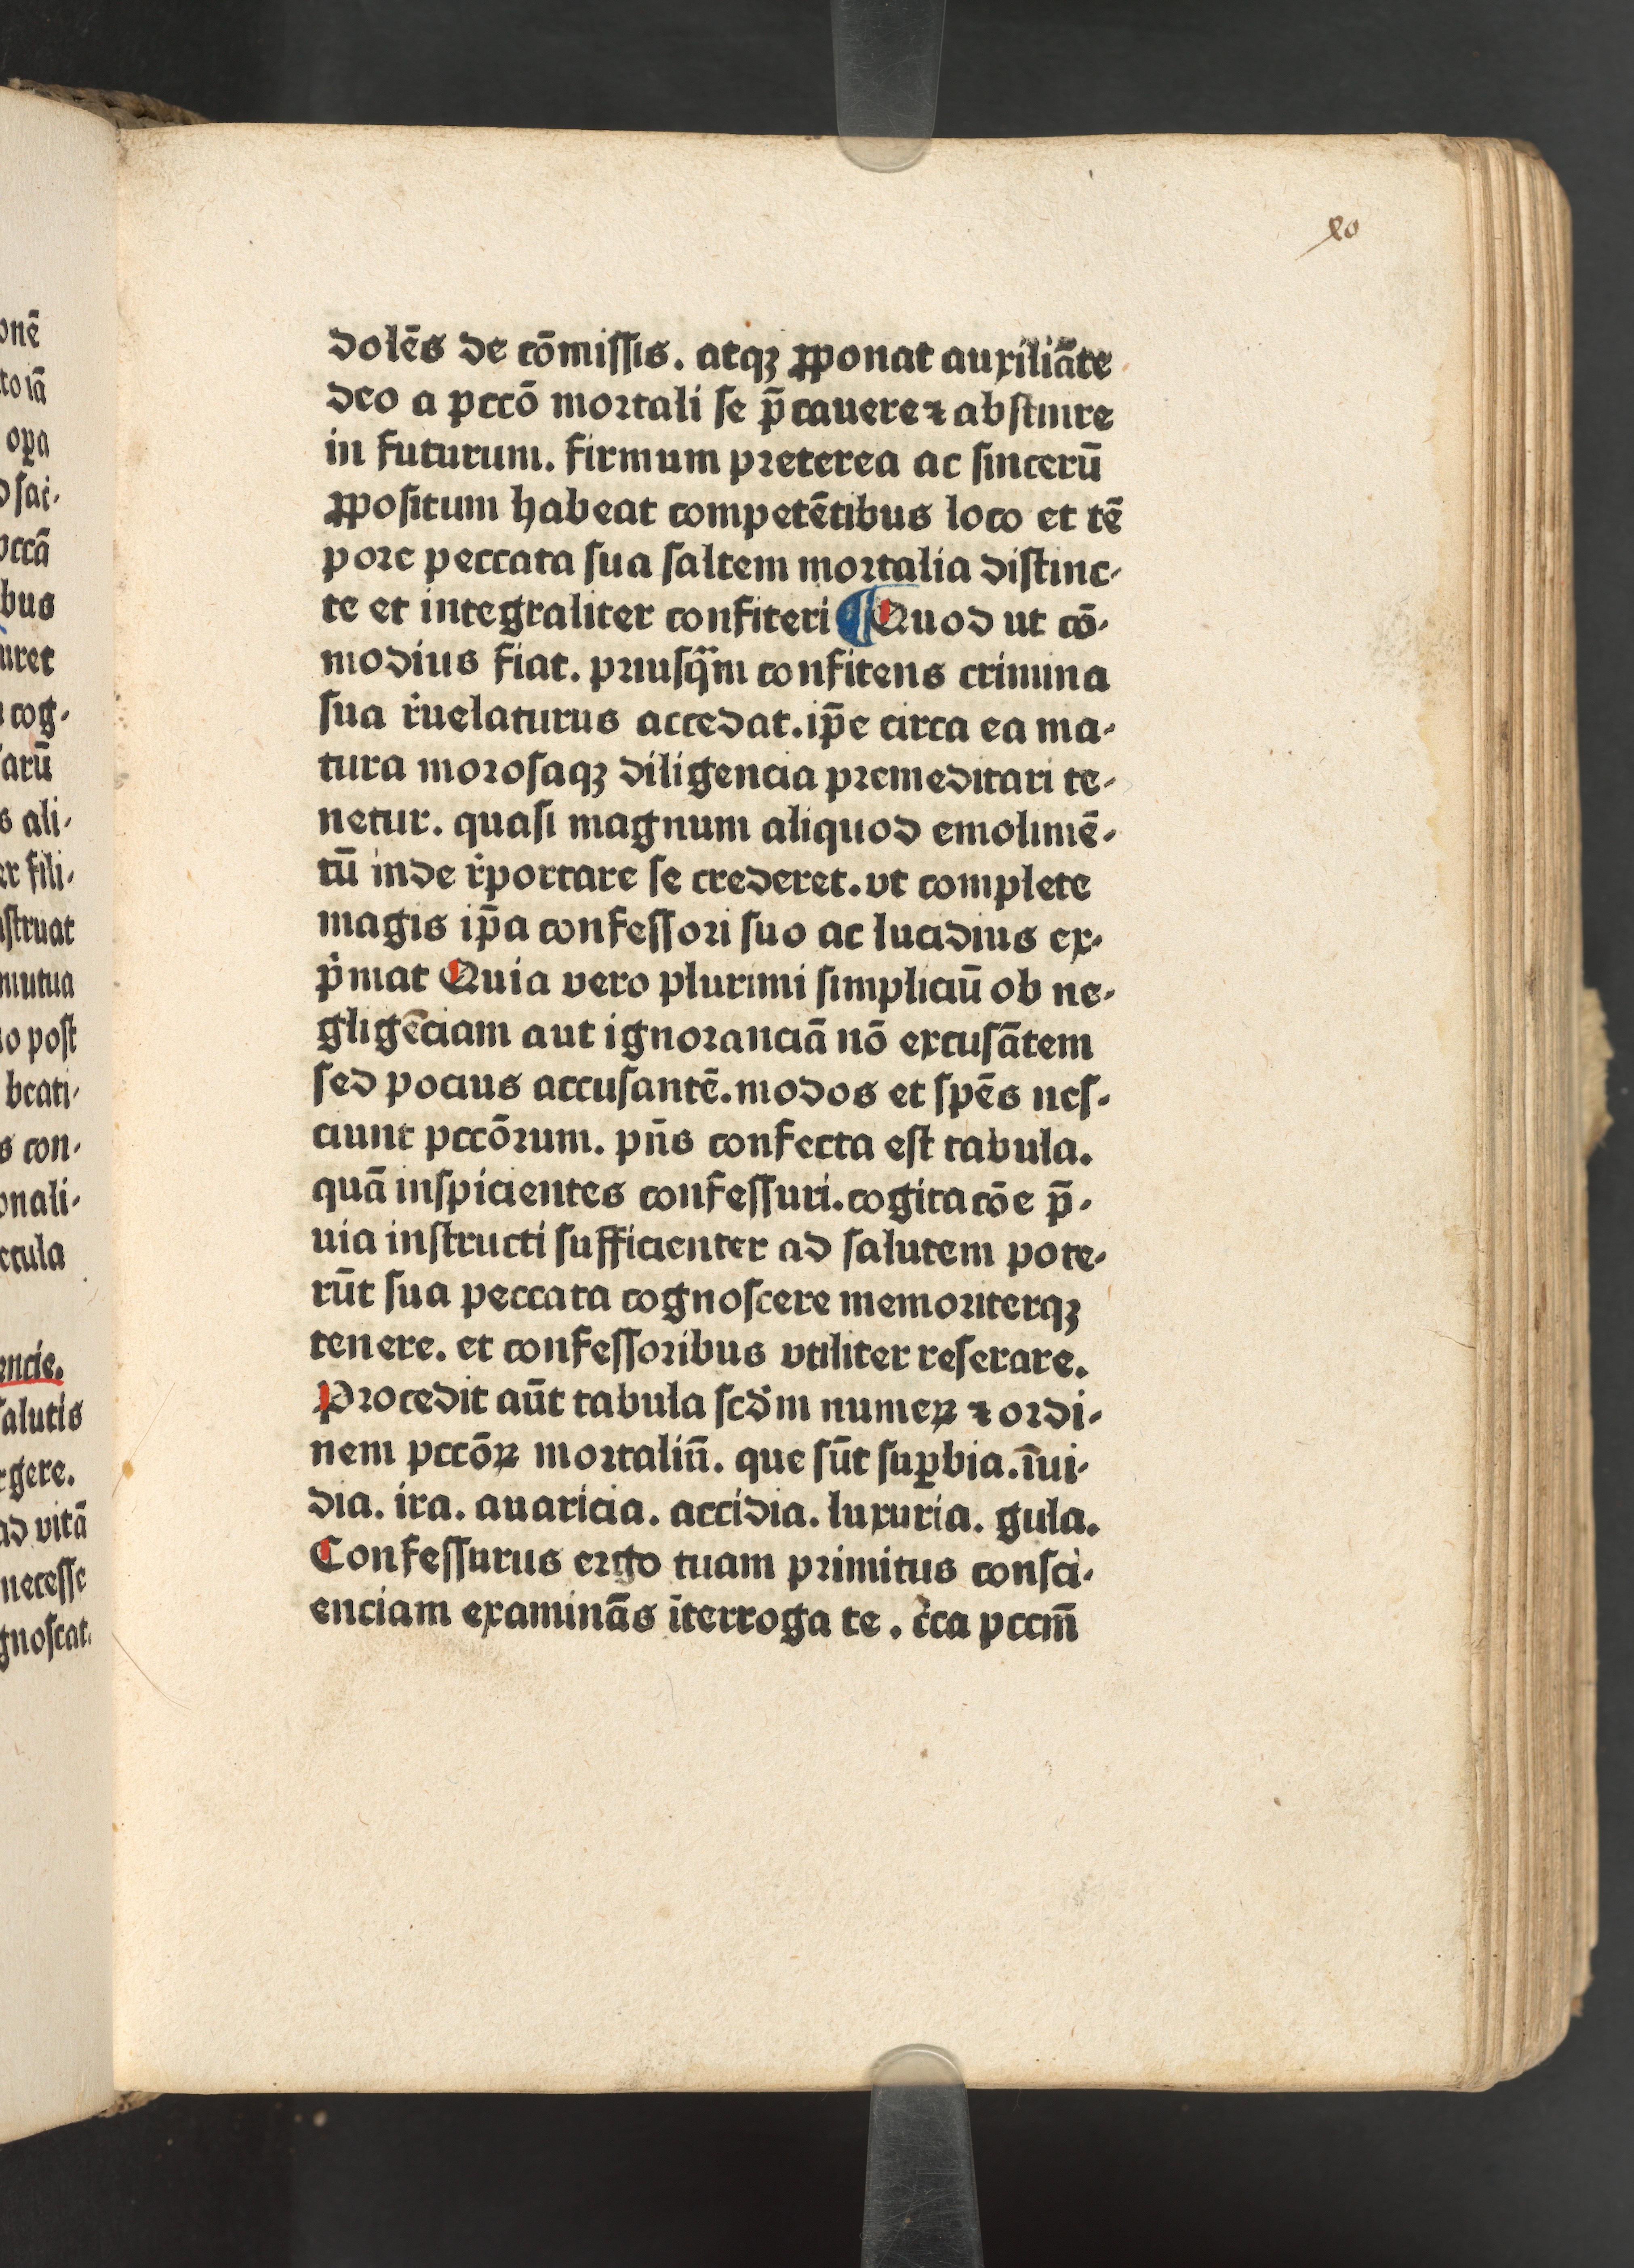 dolēs de cōmissis. atqꝫ ꝓponat auxiliāte
deo a pccō mortali se p̄cauere ⁊ abstinre
in futurum. firmum preterea ac sincerū
ꝓpositum habeat competētibus loco et tē
pore peccata sua saltem mortalia distinc-
te et integraliter confiteri ¶ Quod ut cō-
modius fiat. priusq̄m confitens crimina
sua r̓uelaturus accedat. ip̄e circa ea ma-
tura morosaqꝫ diligencia premeditari te-
netur. quasi magnum aliquod emolimē-
tū inde r̓portare se crederet. vt complete
magis ip̄a confessori suo ac lucidius ex-
p̓mat Quia vero plurimi simpliciū ob ne-
gligēciam aut ignoranciā nō excusātem
sed pocius accusantē. modos et spēs nes-
ciunt pccōrum. pn̄s confecta est tabula.
quā inspicientes confessuri. cogitacōe p̄-
uia instructi sufficienter ad salutem pote-
rūt sua peccata cognoscere memoriterqꝫ
tenere. et confessoribus vtiliter reserare.
Procedit aūt tabula scd̓m numeꝝ ⁊ ordi-
nem pccōꝝ mortaliū. que sūt suꝑbia. īui-
dia. ira. auaricia. accidia. luxuria. gula.
Confessurus ergo tuam primitus consci-
enciam examinās īterroga te. c̓ca pccm̄